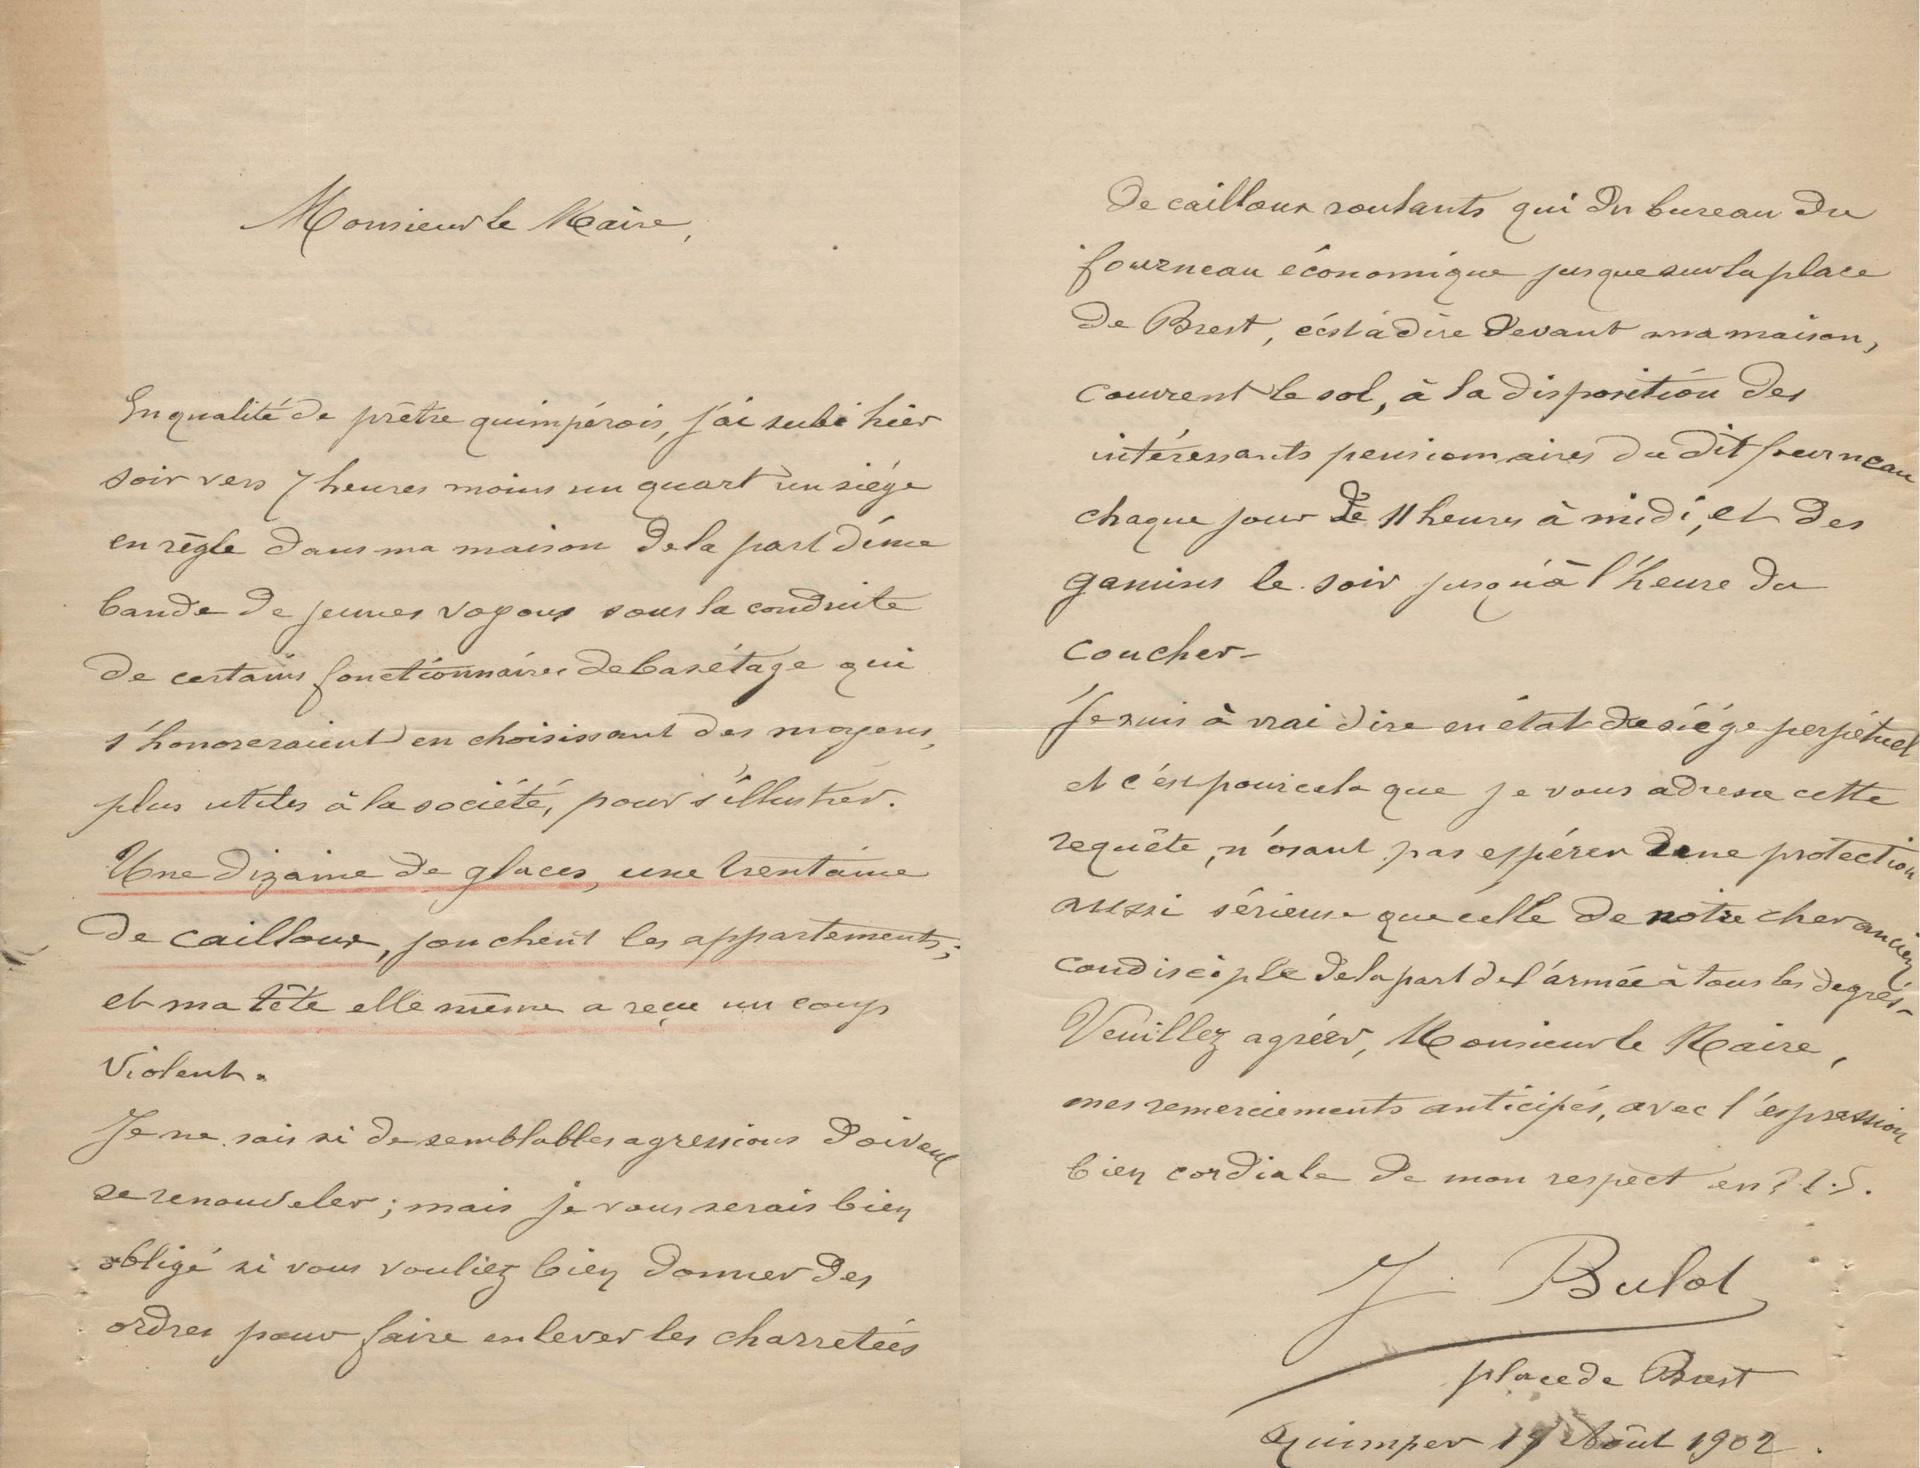 Monsieur le Maire,
En qualité de prêtre quimpérois, j'ai subi hier
soir vers 7 heures moins un quart un siége
en règle dans ma maison de la part d'une
bande de jeunes voyous sous la conduite
de certains fonctionnaires de bas étage qui
s'honoreraient en choisissant des moyens,
plus utiles à la société, pour s'illustrer.
Une dizaine de glaces, une trentaine
de cailloux, jonchent les appartements;
et ma tête elle même a reçu un coup
violent.
Je ne sais si de semblables agressions doivent
se renouveler; mais je vous serais bien
obligé si vous vouliez bien donner des
ordres pour faire enlever les charretées
de cailloux roulants qui du bureau du
fourneau économique jusque sur la place
de Brest, c'est à dire devant ma maison,
couvrent le sol, à la disposition des
intéressants pensionnaires du dit fourneau
chaque jour de 11 heures à midi, et des
gamins le soir jusqu'à l'heure du
coucher-
Je suis à vrai dire en état de siége perpétuel
et c'est pour cela que je vous adresse cette
requête, n'osant pas espérer d'une protection
aussi sérieuse que celle de notre cher ancien
condisciple de la part de l'armée à tous les degrés-
Veuillez agréer, Monsieur le Maire,
mes remerciements anticipés, avec l'expression
bien cordiale de mon respect en
J. Bulot
place de Brest
Quimper Août 1902.